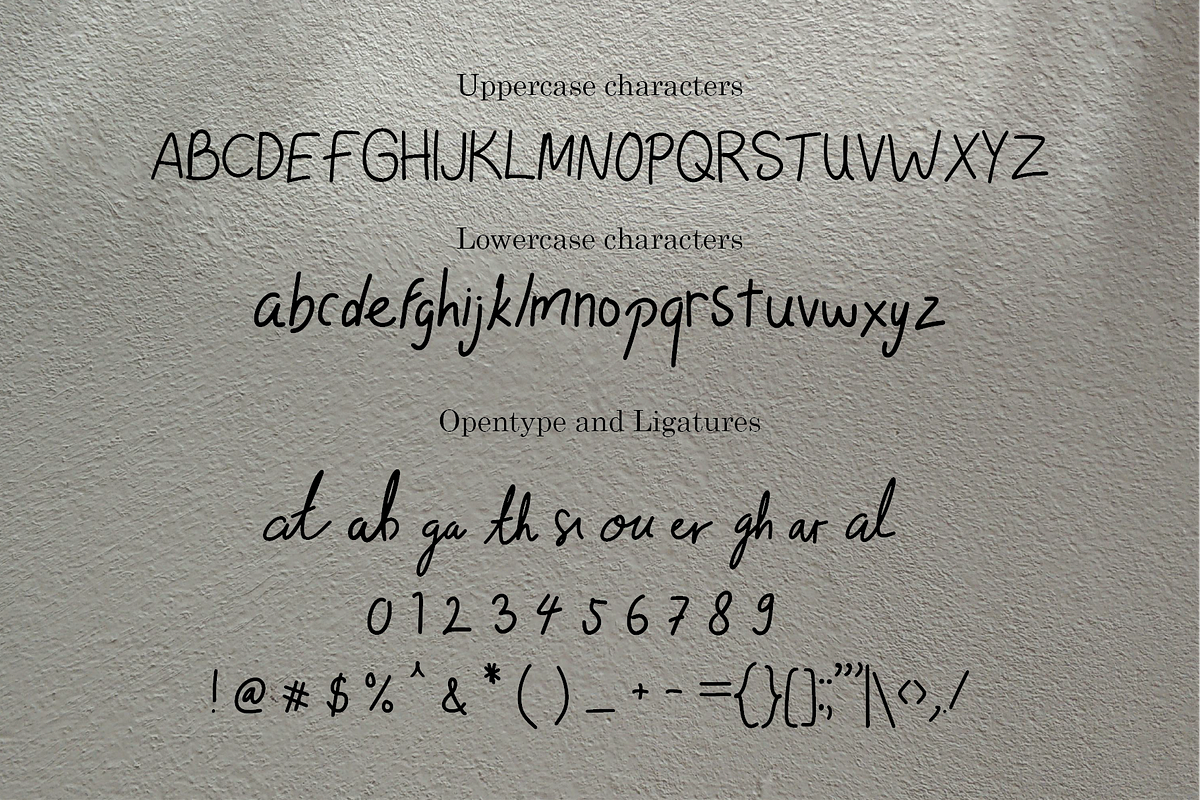 Uppercase characters
ABCDEFGHIJKLMNOPQRSTUVWXYZ
Lowercase characters
abcdefghijklmnopqrstuvwxyz
Opentype and Ligatures
at ab ga th si ou er gh ar al
0 1 2 3 4 5 6 7 8 9
! @ # $ % ^ & * ( ) _ + - = { } [ ] : ; ” ’ | \ < > , . /